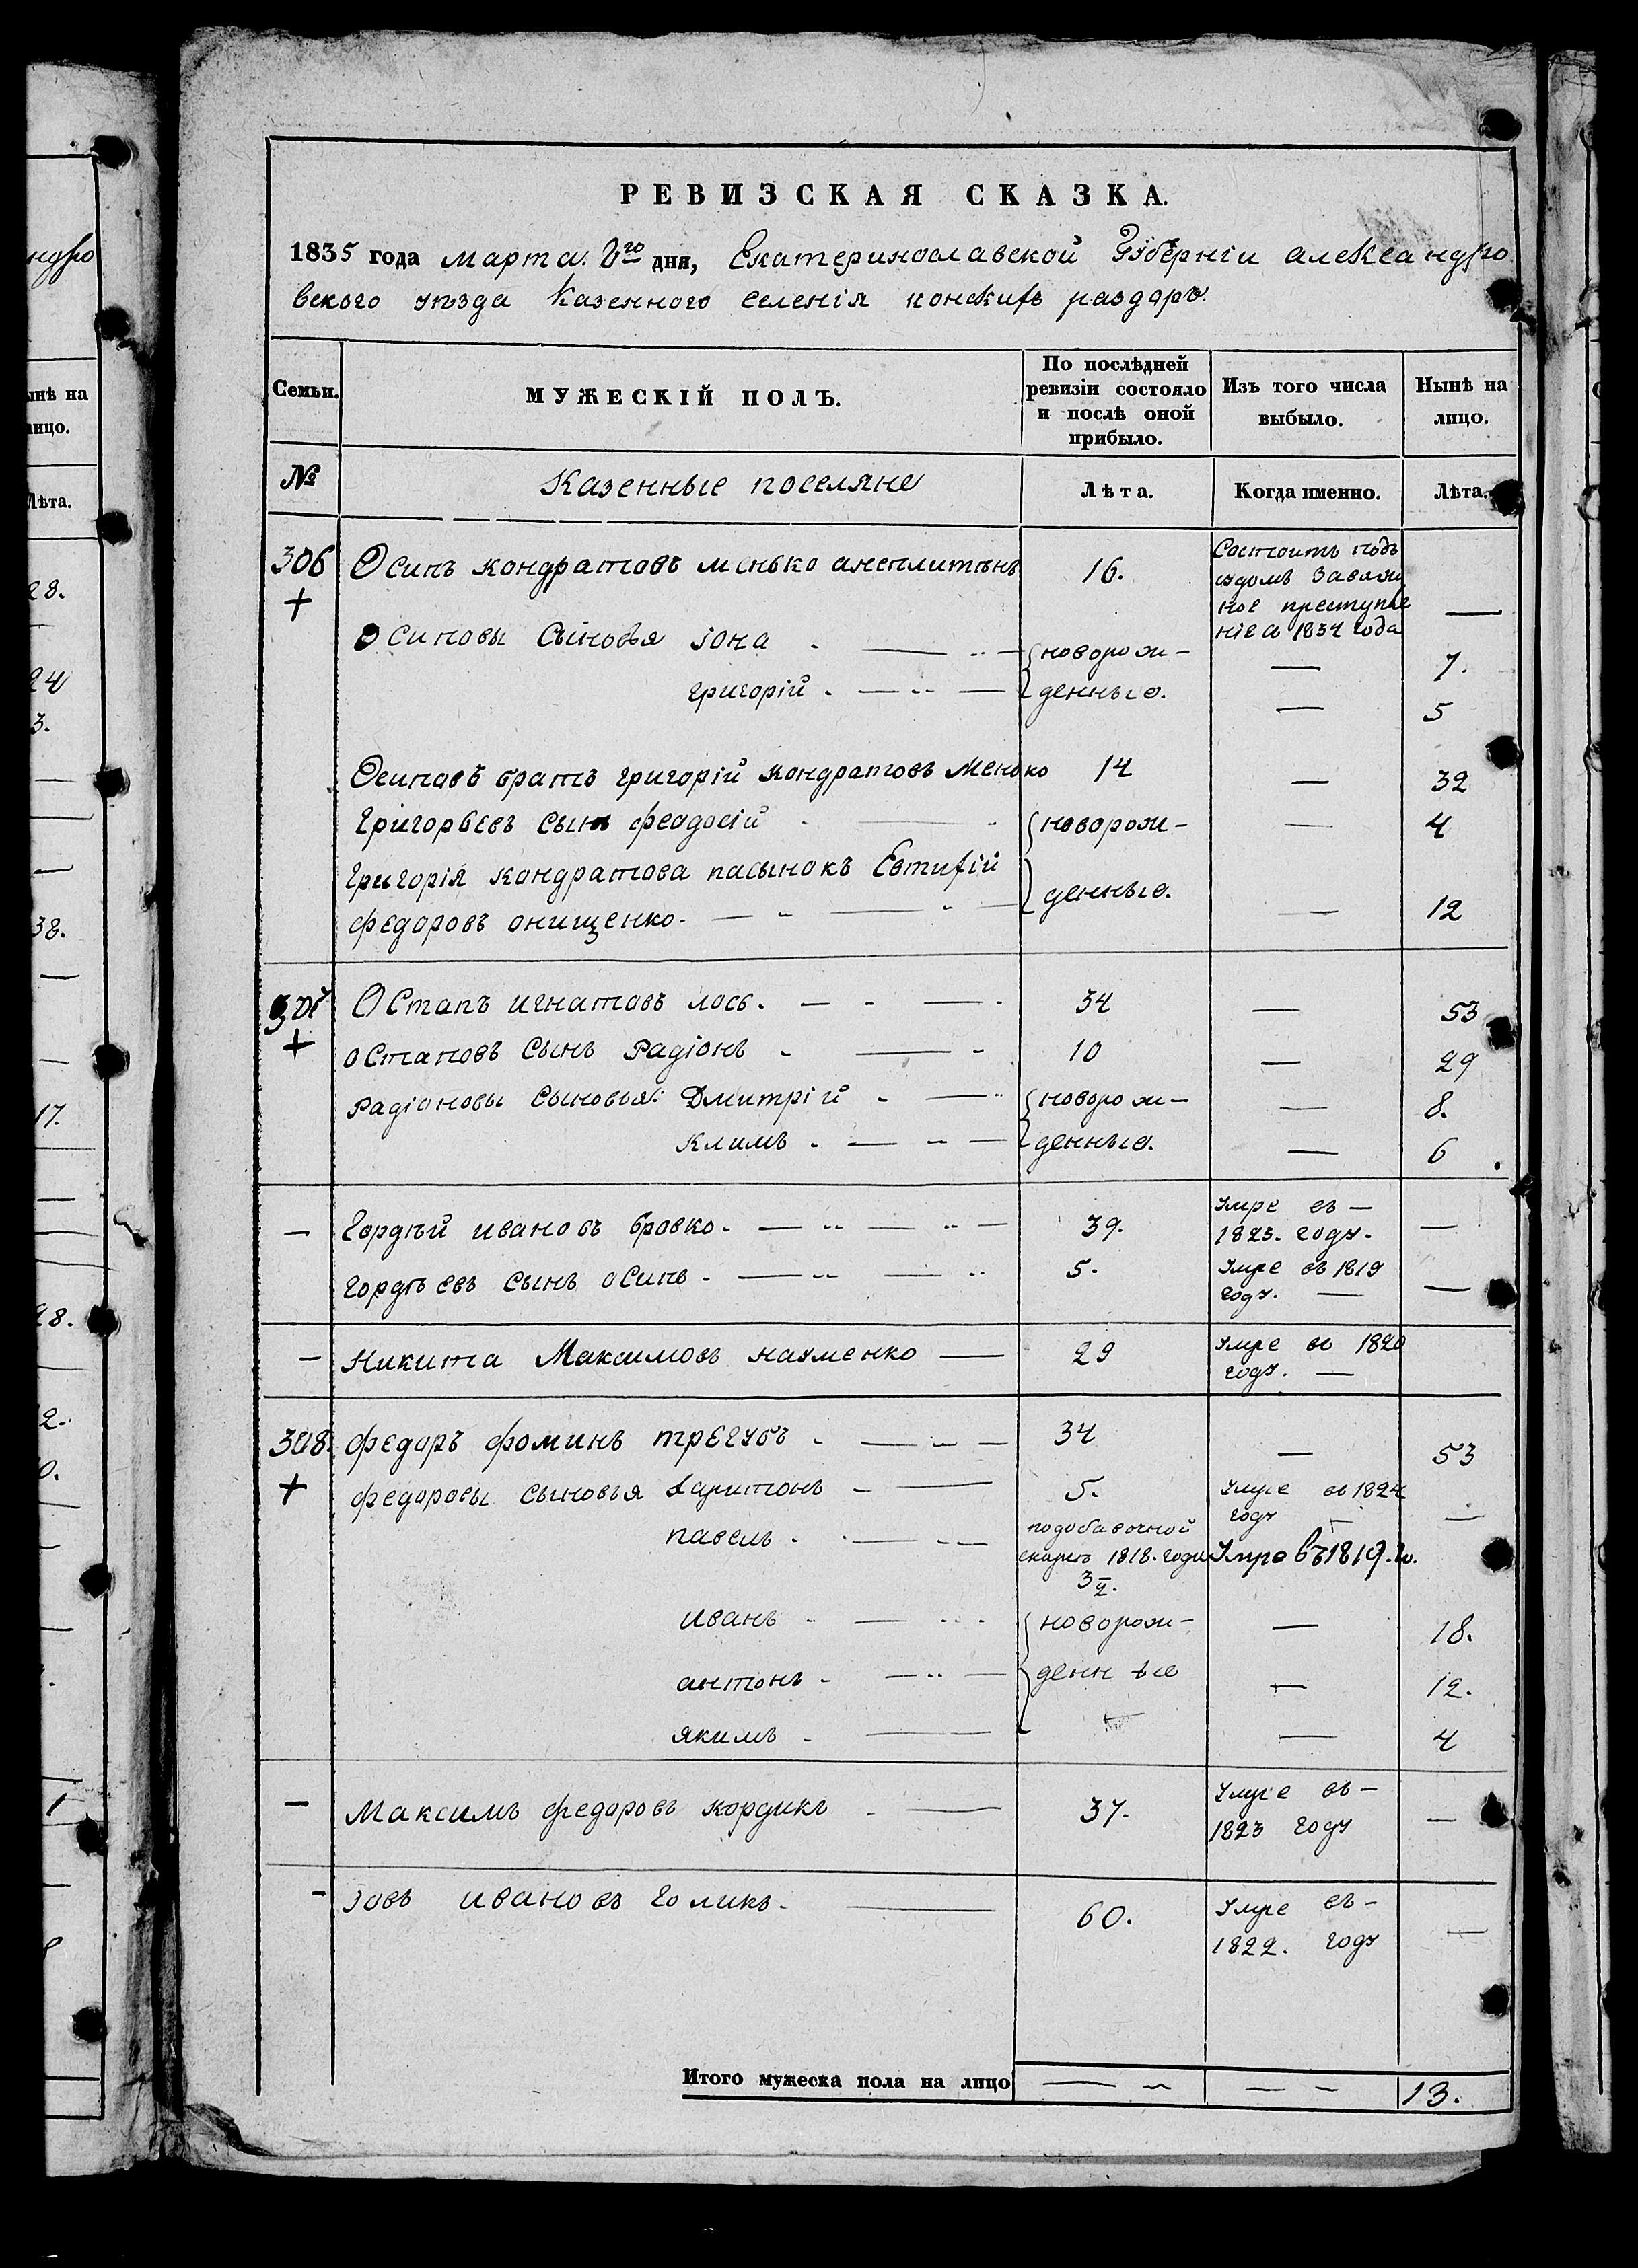 РЕВИЗСКАЯ СКАЗКА.
1835 года марта дня, Екатеринославской Губерніи александро
вского уѣзда Казенного селенія конскихъ раздоръ.
Семьи.
МУЖЕСКІЙ ПОЛЪ.
По послѣдней ревизіи состояло и послѣ оной прибыло.
Изъ того числа выбыло.
Нынѣ на лицо.
№ Казенные поселяне Лѣта. Когда именно. Лѣта.
306 Осипъ кондратовъ менько 16. Состоитъ подъ
+ судомъ
ное преступле —
ніе 1834 года
Осиповы Сыновья іона новорож- — 7.
григорій денные. — 5
Осиповъ братъ григорій кондратовъ Менько 14 — 32
Григорьевъ сынъ феодосій новорож- — 4
Григорія кондратова пасынокъ Евтихій
федоровъ онищенко. денные. — 12
307 Остапъ игнатовъ лось. 34 — 53
+ остаповъ сынъ Радіонъ 10 — 29
Радіоновы сыновья: Дмитрій новорож- — 8.
климъ денные. — 6
— Гордѣй ивановъ бровко. 39. Умре въ —
1823. году. —
гордѣевъ сынъ осипъ. 5. Умре въ 1819
году. — —
— Никита Максимовъ науменко 29 Умре въ 1820
году. —
308. федоръ фоминъ трегубъ 34 — 53
+ федоровы сыновья харитонъ 5. Умре въ 1824
году —
павелъ подобавочной
1818. году Умре въ 1819. го.
3
иванъ новорож- — 18.
антонъ денные — 12.
якимъ — 4
— Максимъ федоровъ кордикъ 37. Умре въ —
1823 году —
— іовъ ивановъ голикъ. 60. Умре въ —
1822. году —
Итого мужеска пола на лицо 13.